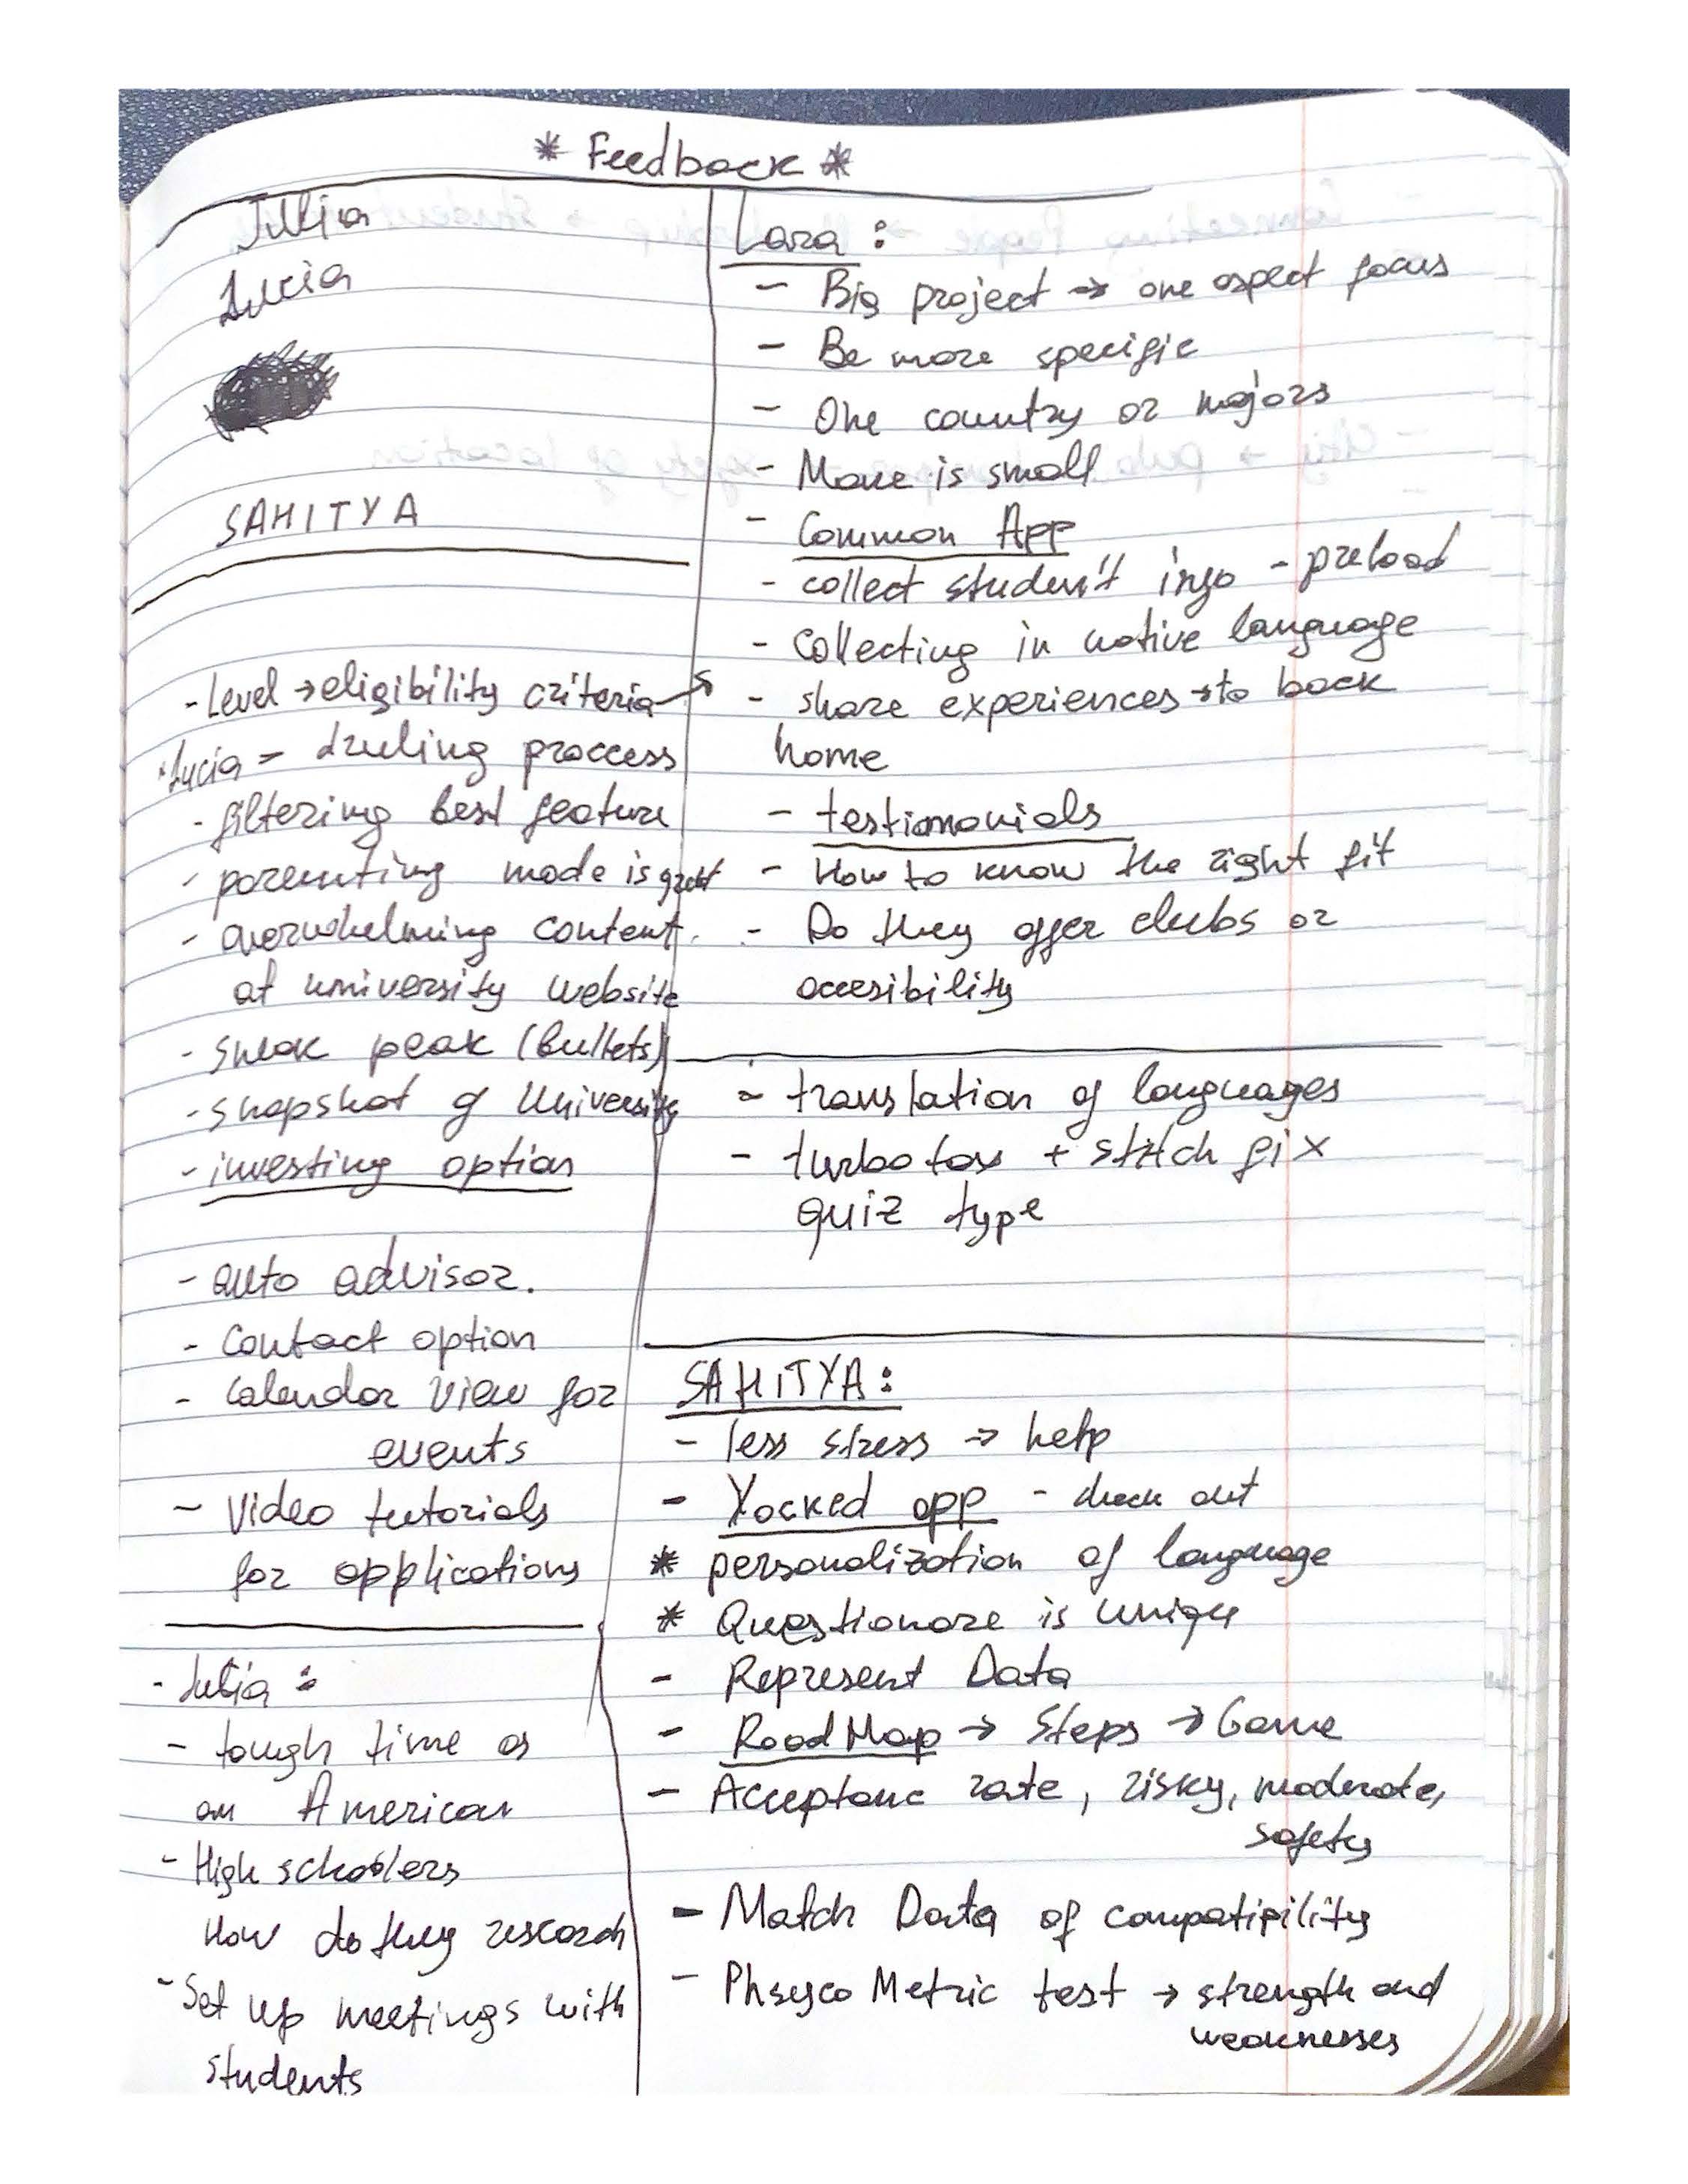 * Feedback *
Jullia
Lucia
SAHITYA
- Level → eligibility criteria →
* Lucia - druling proccess
- filtering best feature
- parenting mode is great
- overwhelming content
at university website
- sneak peak (bullets)
- snapshot of University
- investing option
- auto advisor.
- Contact option
- Calendar view for
events
- Video tutorials
for applications
- Julia :
- tough time as
an American
- High schoolers
How do they research
- Set up meetings with
students
Lara :
- Big project → one aspect focus
- Be more specific
- One country or majors
- Move is small
- Common App
- collect student's info - preload
- Collecting in native language
- share experiences → to back
home
- testimonials
- How to know the right fit
- Do they offer clubs or
accesibility
- translation of languages
- turbo tax + stitch fix
quiz type
SAHITYA :
- less stress → help
- Yocked app - check out
* personalization of language
* Questionare is unique
- Represent Data
- RoadMap → Steps → Game
- Acceptanc rate, risky, moderate,
safety
- Match Data of compatipility
- Phsyco Metric test → strength and
weaknesses